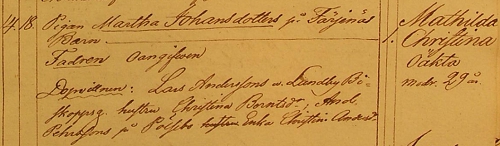 4. 18. Pigan Martha Johansdotters på Färjenäs
Barn
Fadren Oangifven
Dopvittnen: Lars Anderssons i Lundby Bi-
skopsg. hustru Christina Berntsdr, And.
Pehrssons på Pölsebo hustru Enka Christin Andersdr.
Mathilda
1. Christina
Oäkta
modr. 29 år.